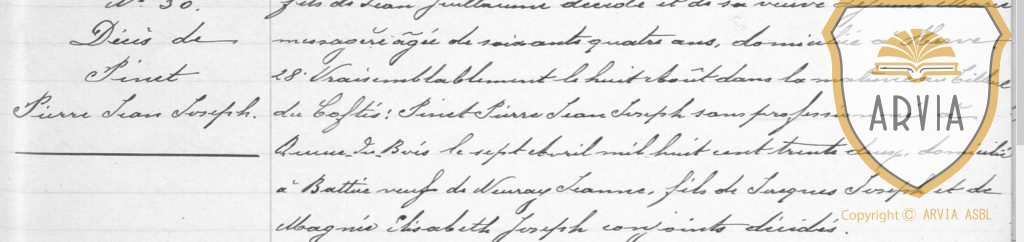 N° 30.
fils de Jean Guillaume décédé et de sa veuve Marie
Décès de
Pinet
Pierre Jean Joseph.
messagère âgée de soixante quatre ans, domiciliée à
28° Vraisemblablement le huit Août dans la matinée
du Pinet Pierre Jean Joseph sans profession
Queue-du-Bois le sept Avril mil huit cent trente deux, domicilié
à Battice veuf de Neuray Jeanne, fils de Jacques Joseph et de
Magnée Elisabeth Joseph conjoints décédés.
ARVIA
Copyright © ARVIA ASBL